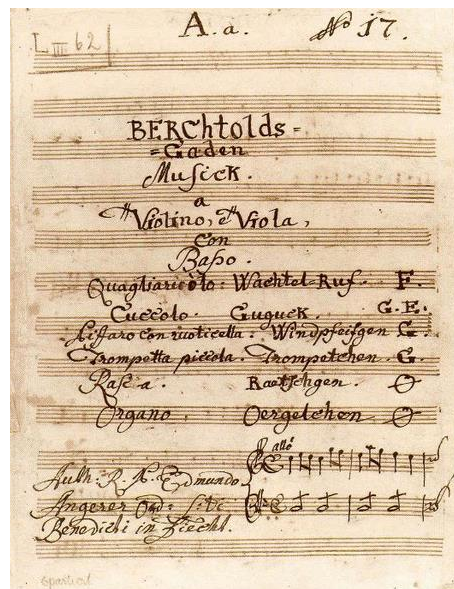 A. a. No 17.
L III 62
BERChtolds=
=Gaden
Musick.
a
Violino, e Viola,
con
Baßo.
Quagliaricolo: Wachtel-Ruf. F.
Cuccolo. Guguck. G. E.
Ziffaro con ruoticella. Windpfeifgen G.
Trompetta piccola. Trompetchen. G.
Rascia. Raetschgen.
Organo. Oergelchen
allo
Auth: R. P. Edmundo
Angerer Ord: S:ti
Benedicti in Fiecht.